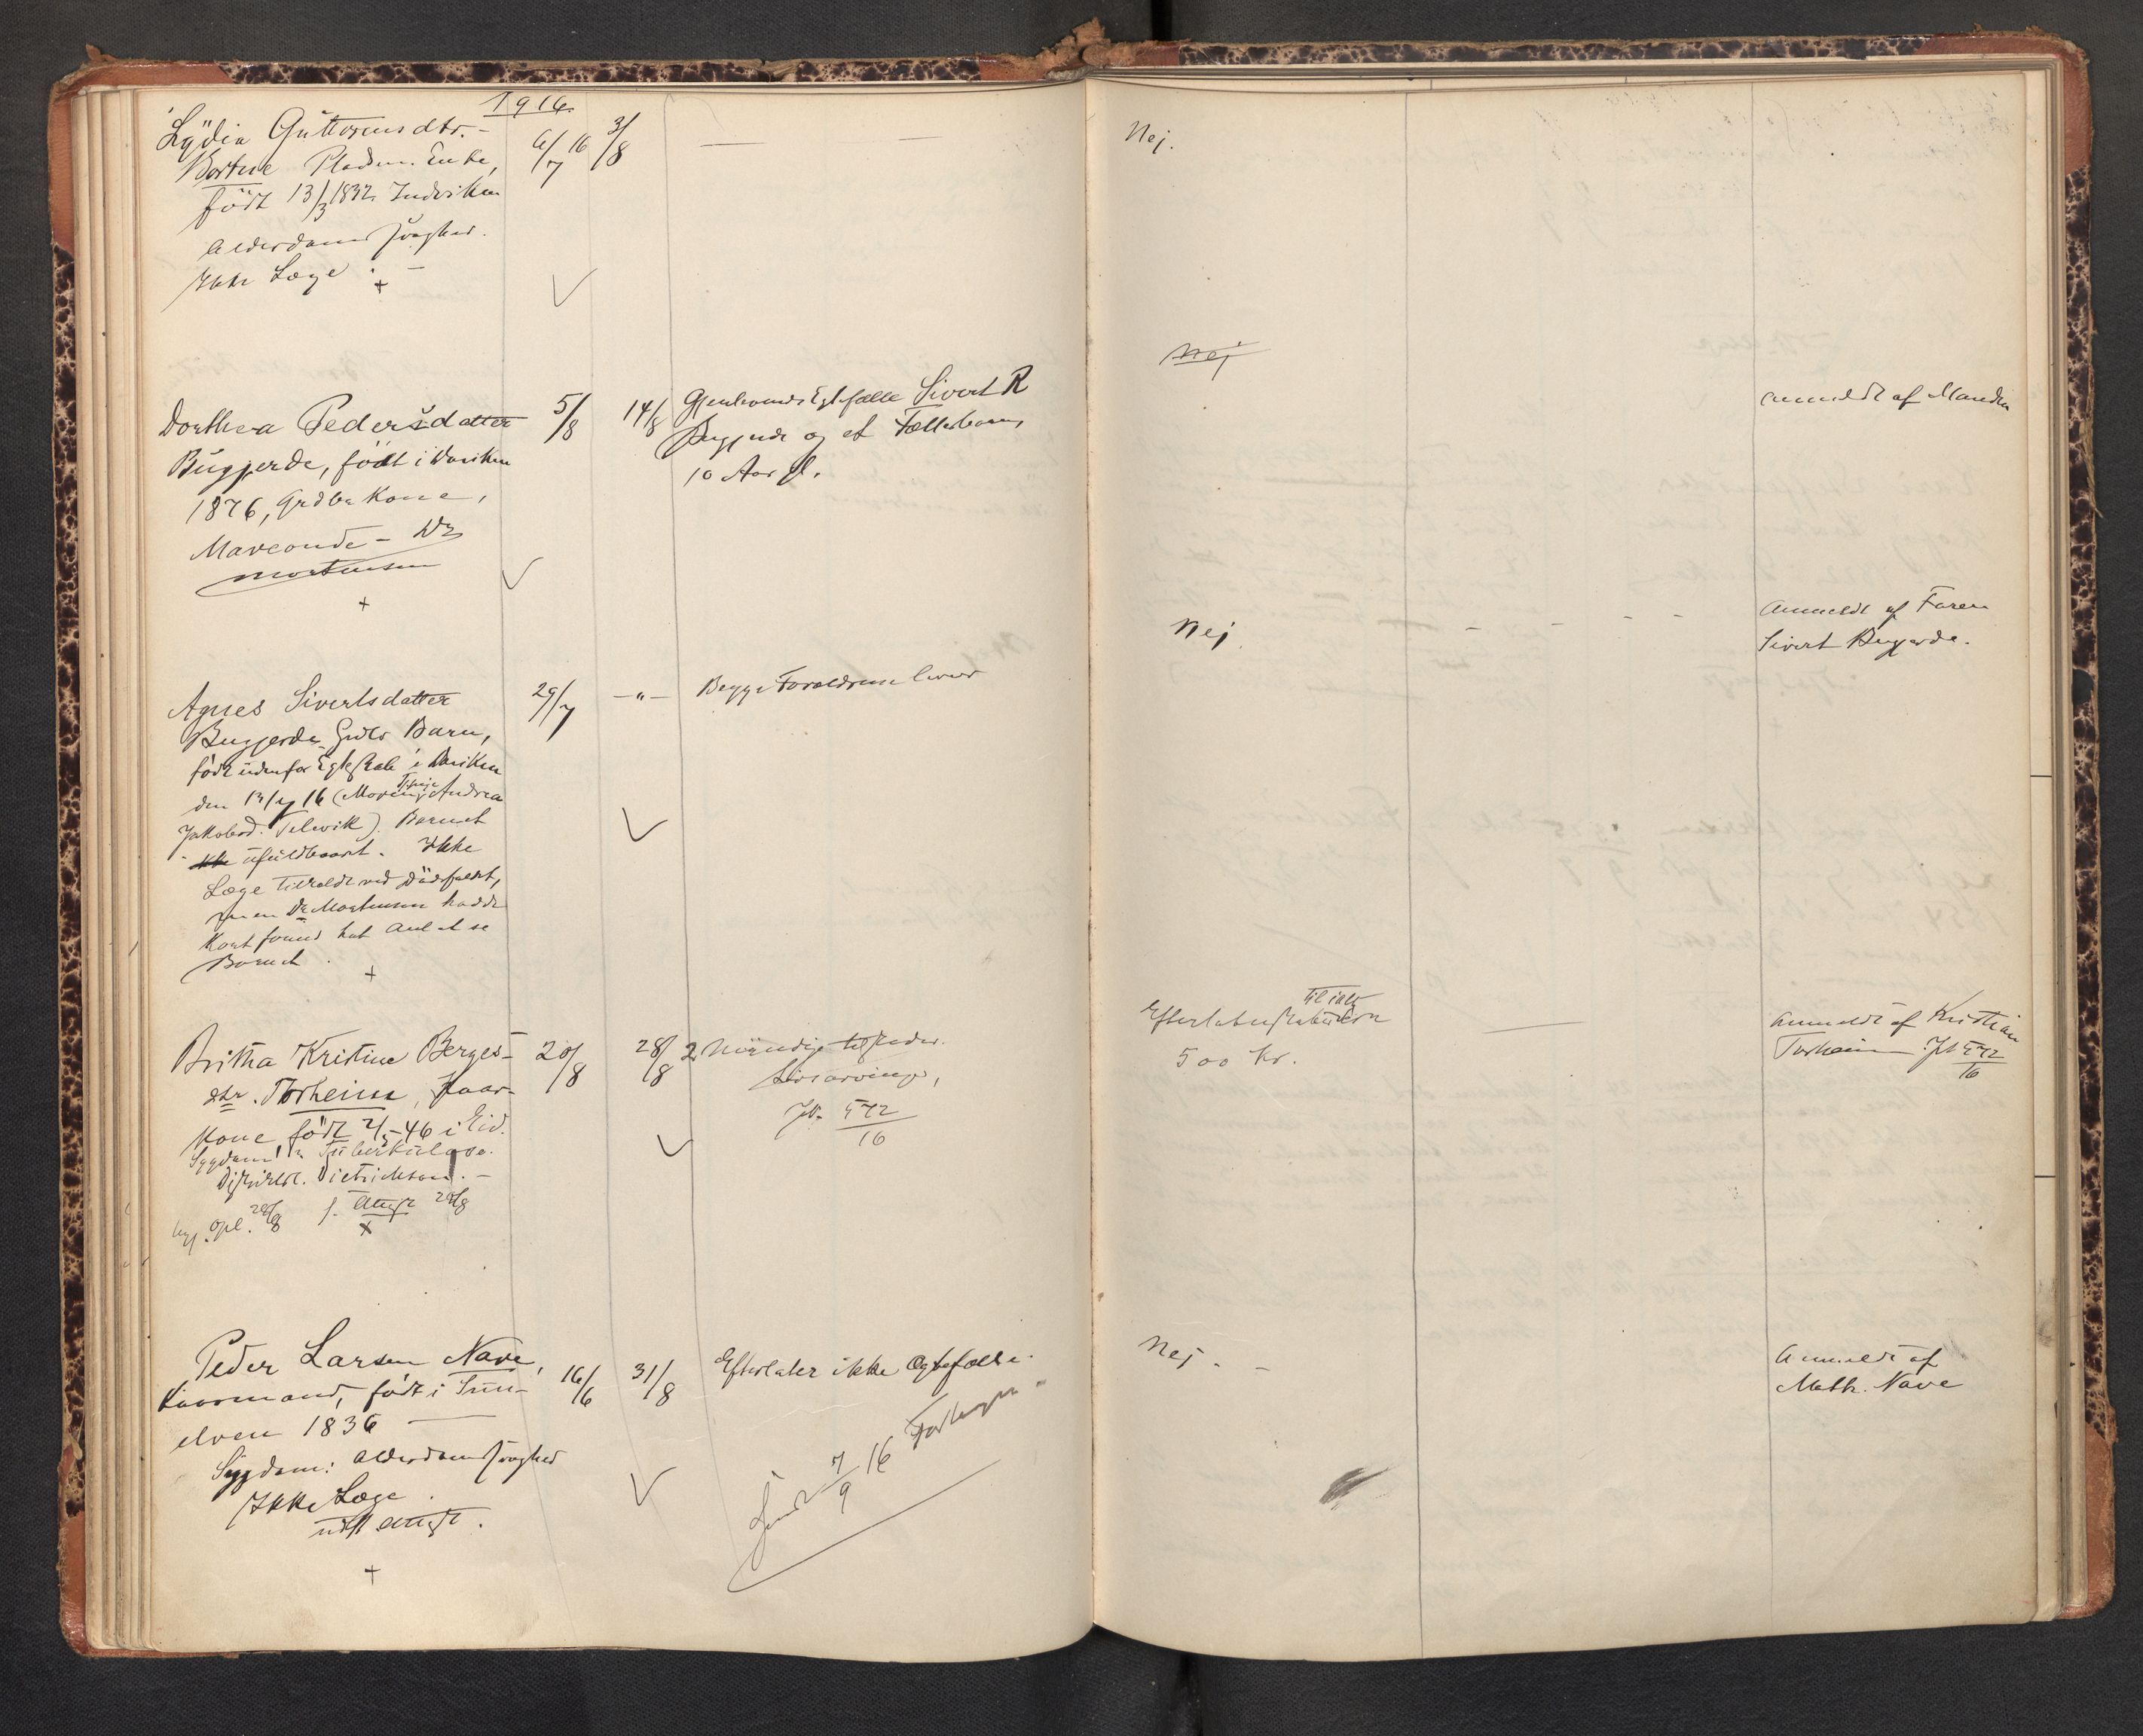 1916
Lydia Guttormsdtr. -
Bortne Pladsm. Enke,
født 13/3 1832. Indviken
Alderdomssvaghed.
Ikke Læge. -
+
6/7 16
3/8
—
Nej.
Nej
Dorthea Pedersdatter
Bugjerde, født i Daviken
1876, Grdbr Kone,
Mavеonde - Dr
Mortensen
+
5/8
14/8
Gjenlevende Egtefælle Sivert R
Bugjerde og et Fællesbarn,
10 Aar gl.
Anmeldt af Manden
Agnes Sivertsdatter
Bugjerde Grdbr Barn,
født udenfor Egteskab i Daviken
den 17/7 16 (Moren: Andrea
Jakobsd. ). Barnet
ufuldbaaret. Ikke
Læge tilkaldt ved Dødsfaldet,
men Dr Mortensen hadde
kort forud hat Anl at se
Barnet.
+
29/7
— " —
Begge Forældrene lever
Nej.
Anmeldt af Faren
Sivert Bugjerde.
Britha Kristine Berges-
dtr. Torheim, Kaar-
kone født 2/5-46 i Eid.
Sygdom: Tuberkulose.
Distriktsl. Dietrichson. -
opl. 28/8 f. Attest 28/8
x
20/8
28/8
2 Myndige tilstede.
Livsarvinger,
Jn. 572/16
Efterladenskaber
til ialt
500 Kr.
—
Anmeldt af Kristian
Torheim Jn 572/16
Peder Larsen Nave,
Kaarmand, født i Sun-
elven 1836 —
Sygdom: Alderdomssvaghed
Ikke Læge.
udst attest.
+
16/6
31/8
Efterlater ikke Egtefælle.
Sendt 7/9 16
Nej. -
Anmeldt af
Math. Nave